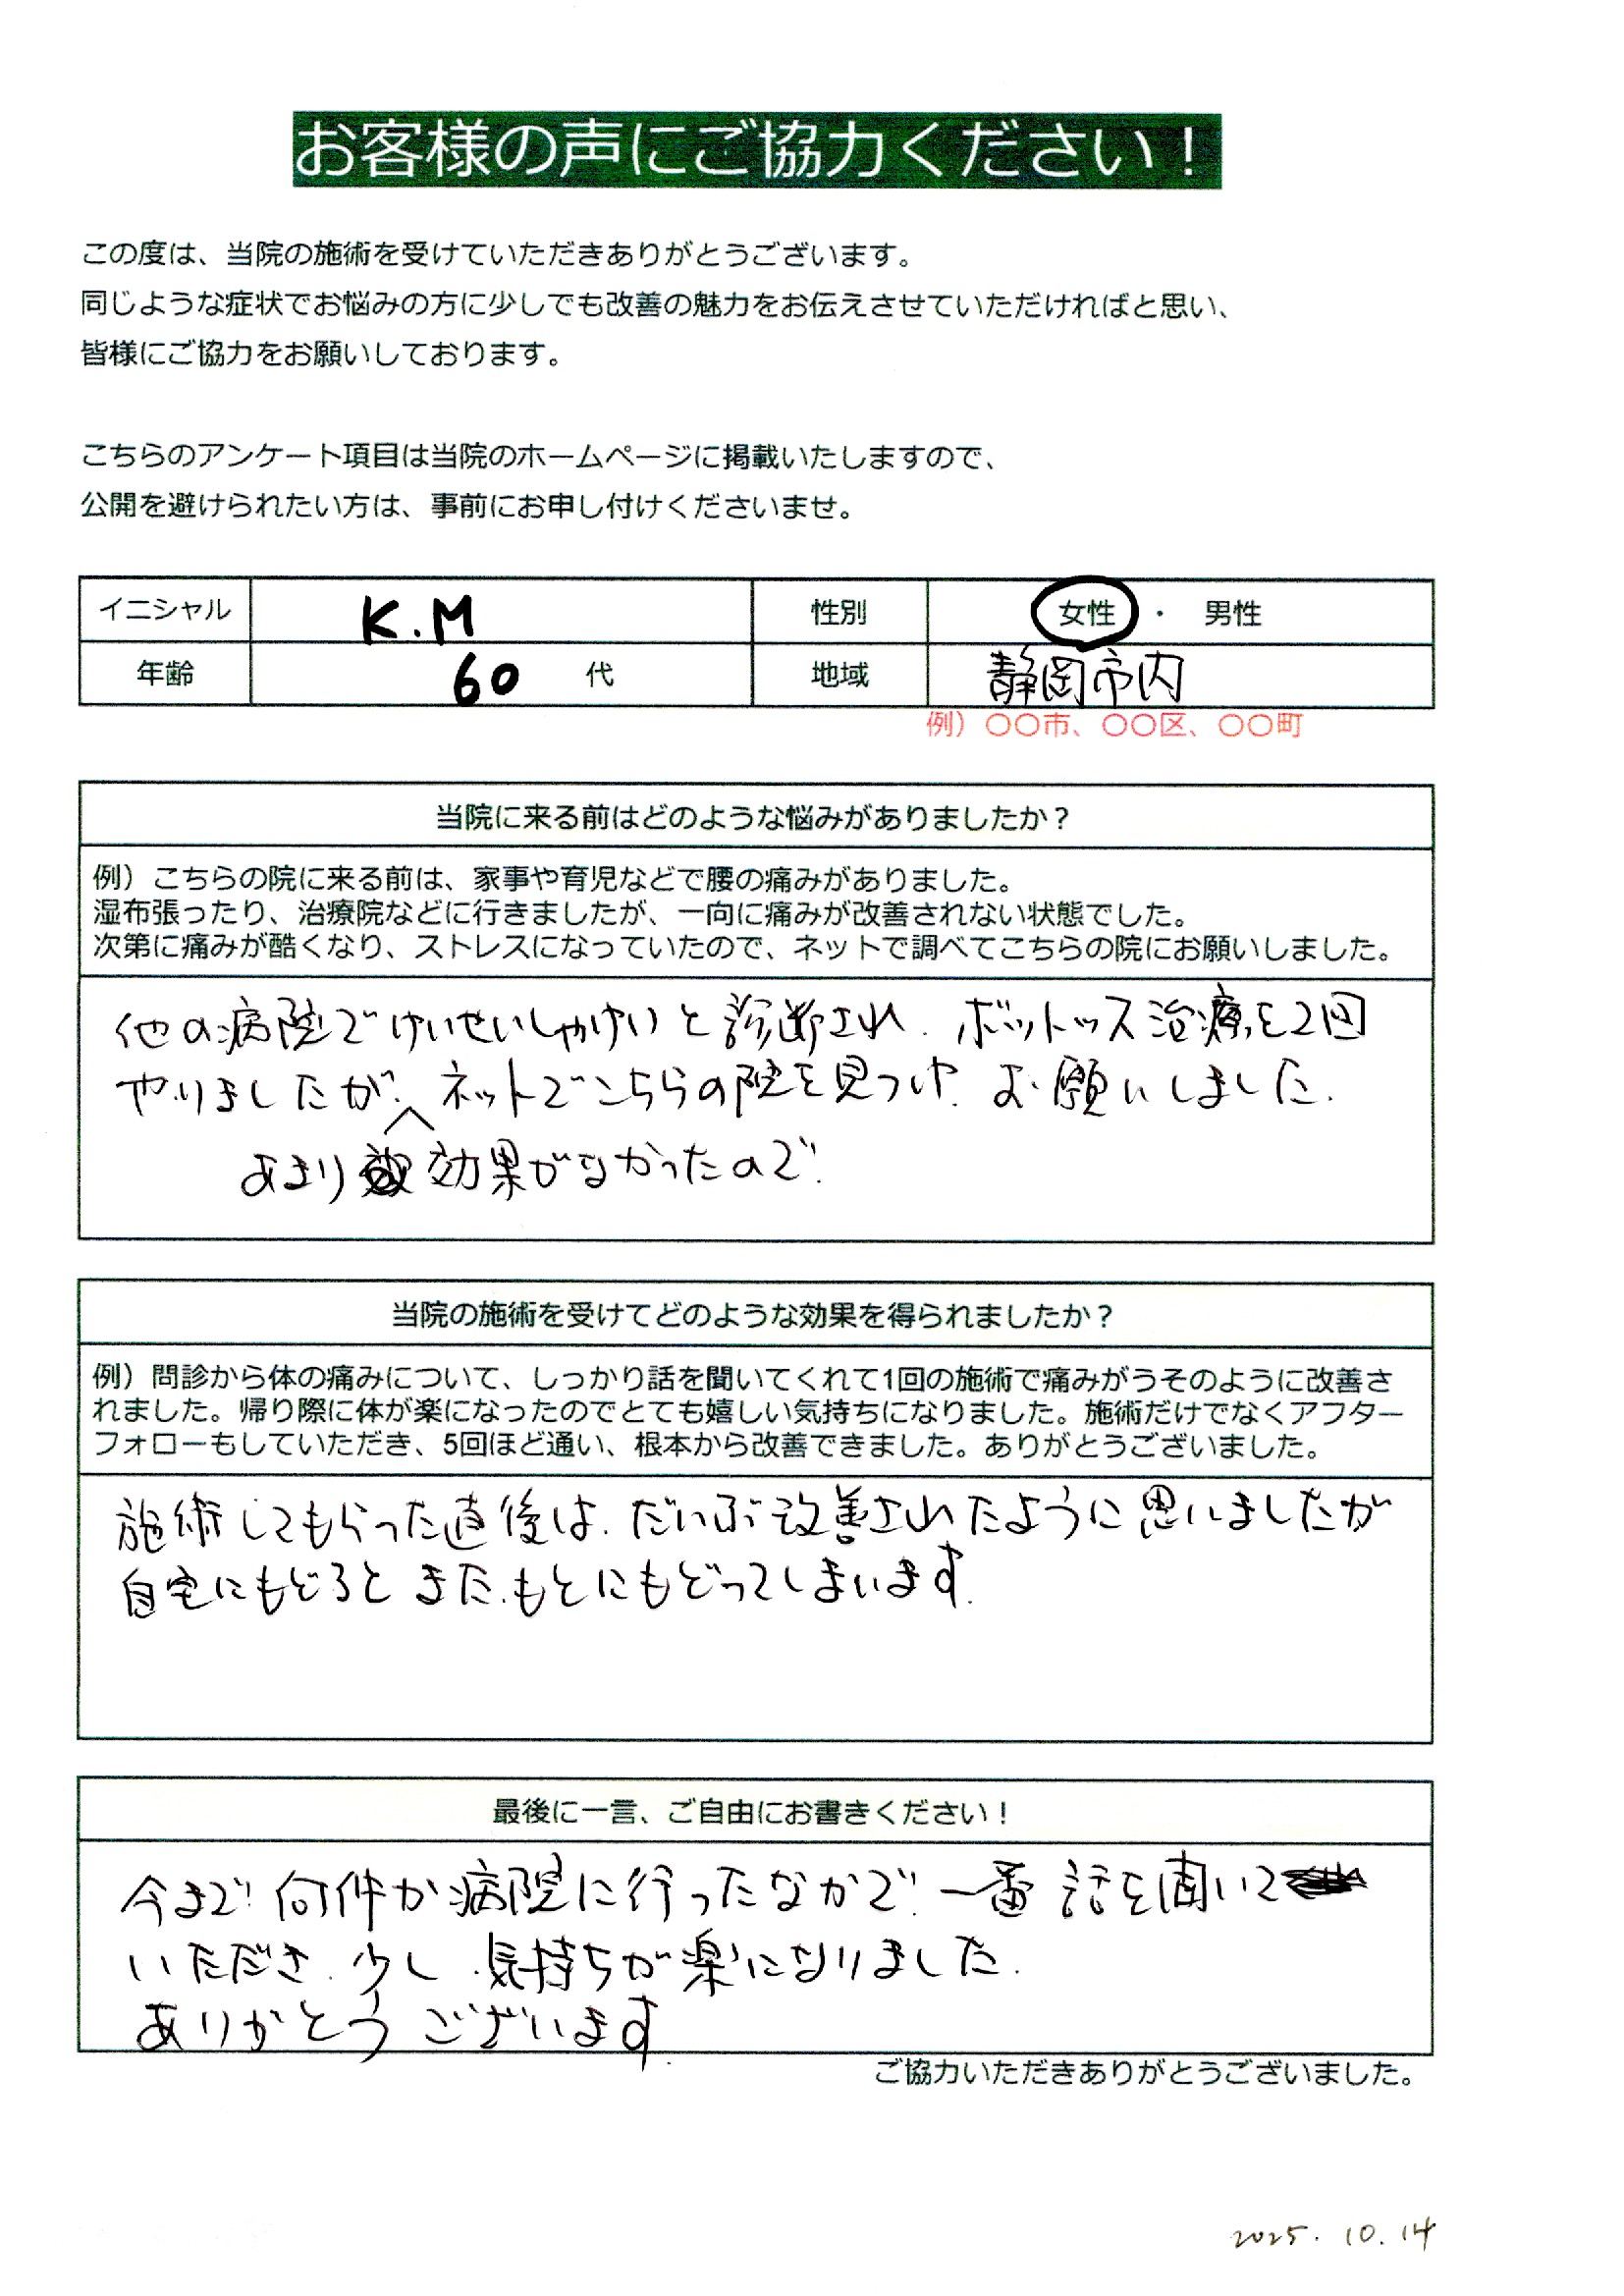 お客様の声にご協力ください！
この度は、当院の施術を受けていただきありがとうございます。
同じような症状でお悩みの方に少しでも改善の魅力をお伝えさせていただければと思い、
皆様にご協力をお願いしております。
こちらのアンケート項目は当院のホームページに掲載いたしますので、
公開を避けられたい方は、事前にお申し付けくださいませ。
イニシャル K.M 性別 女性 ・ 男性
年齢 60 代 地域 静岡市内
例）〇〇市、〇〇区、〇〇町
当院に来る前はどのような悩みがありましたか？
例）こちらの院に来る前は、家事や育児などで腰の痛みがありました。
湿布張ったり、治療院などに行きましたが、一向に痛みが改善されない状態でした。
次第に痛みが酷くなり、ストレスになっていたので、ネットで調べてこちらの院にお願いしました。
他の病院でけいせいしゃけいと診断され、ボットックス治療を2回
やりましたが、ネットでこちらの院を見つけ、お願いしました。
あまり効果がなかったので、
当院の施術を受けてどのような効果を得られましたか？
例）問診から体の痛みについて、しっかり話を聞いてくれて1回の施術で痛みがうそのように改善さ
れました。帰り際に体が楽になったのでとても嬉しい気持ちになりました。施術だけでなくアフター
フォローもしていただき、5回ほど通い、根本から改善できました。ありがとうございました。
施術してもらった直後は、だいぶ改善されたように思いましたが
自宅にもどるとまた、もとにもどってしまいます。
最後に一言、ご自由にお書きください！
今まで何件か病院に行ったなかで、一番話を聞いて
いただき、少し、気持ちが楽になりました。
ありがとうございます。
ご協力いただきありがとうございました。
2025.10.14